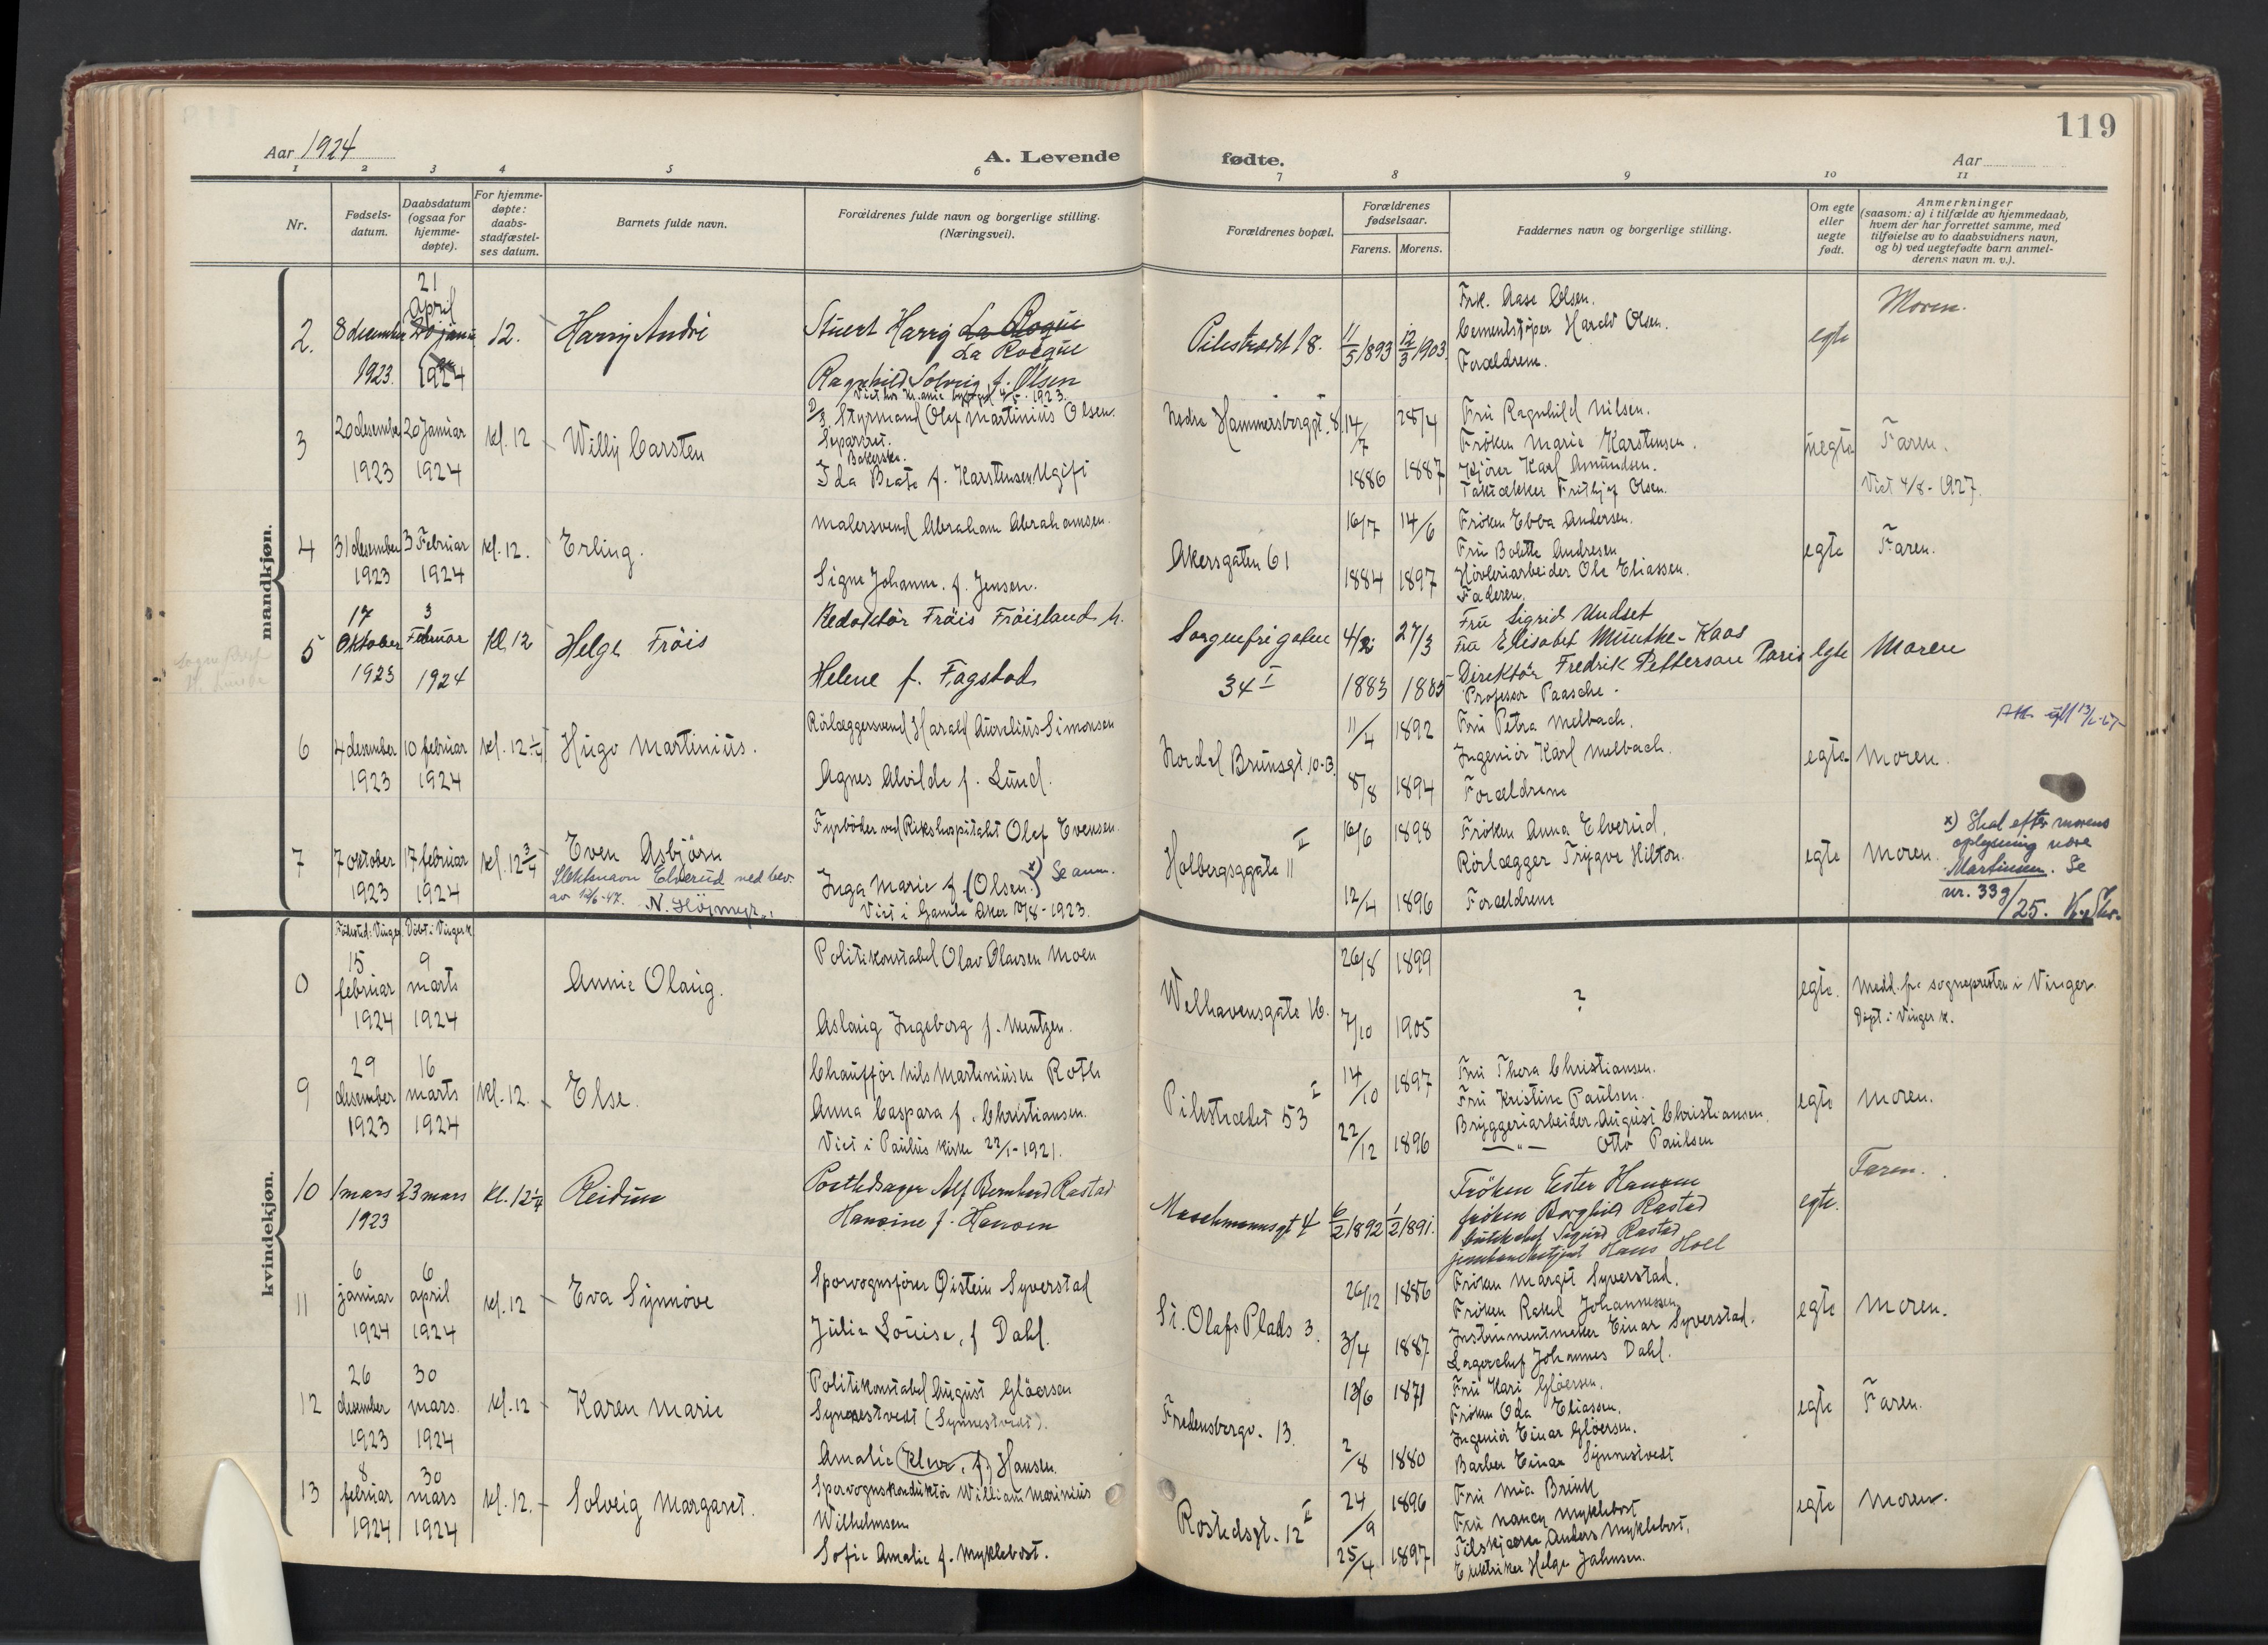 119
Aar 1924
A. Levende
fødte.
Aar
1 2 3 4 5 6 7 8 9 10 11
Nr.
Fødsels-
datum.
Daabsdatum
(ogsaa for
hjemme-
døpte).
For hjemme-
døpte:
daabs-
stadfæstel-
ses datum.
Barnets fulde navn.
Forældrenes fulde navn og borgerlige stilling.
(Næringsvei).
Forældrenes bopæl.
Forældrenes
fødselsaar.
Farens. Morens.
Faddernes navn og borgerlige stilling.
Om egte
eller
uegte
født.
Anmerkninger
(saasom: a) i tilfælde av hjemmedaab,
hvem der har forrettet samme, med
tilføielse av to daabsvidners navn,
og b) ved uegtefødte barn anmel-
derens navn m. v.).
mandkjøn.
2.
8 desember
1923.
21
April
1924
12.
Harry André
Stuert Harry La Roque
La Rocque
Ragnhild Solveig f. Olsen
Pilestrædet 18.
11/5 1893
12/3 1903.
Frk. Aase Olsen.
Cementstøper Harald Olsen.
Forældrene.
egte
Moren.
3
20 desember
1923
20 januar
1924
kl. 12
Willy Carsten
Styrmand Olaf Martinius Olsen.
Separeret.
Ida Beate f. Karstensen Ugift
Nedre Hammersborggt. 8.
14/7
1886
28/4
1887
Fru Ragnhild Nilsen.
Frøken Marie Karstensen.
Kjører Karl Amundsen.
Taktækker Frithjof Olsen.
uegte
Faren.
Viet 4/8 - 1927.
4
31 desember
1923
3 Februar
1924
kl. 12.
Erling.
Malersvend Abraham Abrahamsen.
Signe Johanne. f. Jensen.
Akersgaten 61
16/7
1884
14/6
1897
Frøken Ebba Andersen.
Fru Bolette Andresen
Høvleriarbeider Ole Eliassen.
Faderen.
egte
Faren.
5
17
Oktober
1923
3
Februar
1924
Kl 12
Helge Fröis
Redaktör Fröis Fröisland
Helene f. Fagstad
Sorgenfrigaten
34 I
4/2
1883
27/3
1885
Fru Sigrid Undset
Fru Elisabet Münthe-Kaas
Direktör Fredrik Petterson Paris
Professor Paasche.
Egte
Moren
6
4 desember
1923
10 februar
1924
kl. 12 1/4
Hugo Martinius.
Rørlæggersvend Harald Aurelius Simonsen
Agnes Alvilde f. Lund.
Nordal Brunsgt. 10-B.
11/4
1892
8/8
1894
Fru Petra Melbach.
Ingeniør Karl Melbach.
Forældrene
egte
Moren.
7
7 oktober
1923
17 februar
1924
kl. 12 3/4
Even Asbjørn
Slektsnavn Elverud ved bev.
av 12/6-47.
Fyrbøder ved Rikshospitalet Olaf Evensen.
Inga Marie f. (Olsen. x) Se anm.
Viet i Gamle Aker 19/8 - 1923.
Holbergsggate 11 II
16/6
1898
12/4
1896
Frøken Anna Elverud.
Rørlægger Trygve Hilton.
Forældrene
egte
Moren.
x) Skal efter morens
oplysning være
Martinsen. Se
nr. 339/25.
kvindekjøn.
Fødested: Vinger
Døbt i Vinger k.
15
februar
1924
9
marts
1924
Annie Olaug.
Politikonstabel Olav Olavsen Moen
Aslaug Ingeborg f. Mentzen.
Welhavensgate 16.
26/8
1899
7/10
1905
?
egte.
Medd. fra sognepresten i Vinger.
Døpt i Vinger k.
9
29
desember
1923
16
marts
1924
kl. 12.
Else.
Chauffør Nils Martiniusen Roth
Anna Caspara f. Christiansen.
Viet i Paulus kirke 22/1 - 1921.
Pilestrædet 53 I
14/10
1897
22/12
1896
Fru Thora Christiansen.
Fru Kristine Paulsen.
Bryggeriarbeider August Christiansen.
—"— Otto Paulsen
egte
Moren.
10
1 mars
1923
23 mars
Kl. 12 1/4
Reidun
Alf Bernhard Rastad
Hansine f. Hansen
Maschmannsgt 4
6/2 1892
1/2 1891.
Frøken Ester Hansen
Frøken Borghild Rastad
Sigurd Rastad
Hans Holl
egte.
Faren.
11
6
januar
1924
6
april
1924
kl. 12
Eva Synnøve
Sporvognsfører Øistein Syverstad
Julie Louise, f Dahl.
St. Olafs Plads 3.
26/12
1886
3/4
1887
Frøken Margit Syverstad.
Frøken Rakel Johannessen
Instrumentmaker Einar Syverstad.
Lagerchef Johannes Dahl.
egte
Moren.
12
26
desember
1923
30
mars.
1924
kl. 12
Karen Marie
Politikonstabel August Gløersen
Synnestvedt (Synnestvedt).
Amalie f. Hansen.
Fredensborgv. 13.
13/6
1871
2/8
1880
Fru Kari Gløersen.
Frøken Oda Eliassen.
Ingeniør Einar Gløersen.
Barber Einar Synnestvedt
egte
Faren.
13
8
februar
1924
30
mars
1924
kl. 12.
Solveig Margaret.
Sporvognskonduktør William Marinius
Wilhelmsen
Sofie Amalie f. Myklebost.
Rostedsgt. 12 II
24/9
1896
25/4
1897
Fru Mia Brenk
Fru Nancy Myklebost
Anders Myklebost.
Elektriker Helge Jahnsen.
egte
Moren.